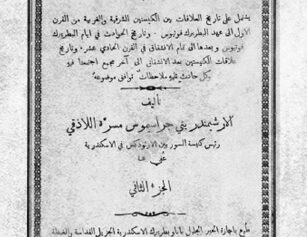 يشتمل على تاريخ العلاقات بين الكنيستين الشرقية والغربية من القرن
الاول الى عهد البطريرك فوتيوس . وتاريخ الحوادث في ايام البطريرك
فوتيوس . وبعدها الى تمام الانشقاق في القرن الحادي عشر . وتاريخ
علاقات الكنيستين بعد الانشقاق الى آخر مجمع اجتمعا فيه
بكل حادث تليه ملاحظات توافق موضوعه
تأليف
الارشمندريتي جراسيموس مسرّه اللاذقي
رئيس كنيسة السوريين الارثوذكس في الاسكندرية
عفي عنه
الجزء الثاني
طبع باجازة الحبر الجليل بابا وبطريرك الاسكندرية الجزيل القداسة والغبطة